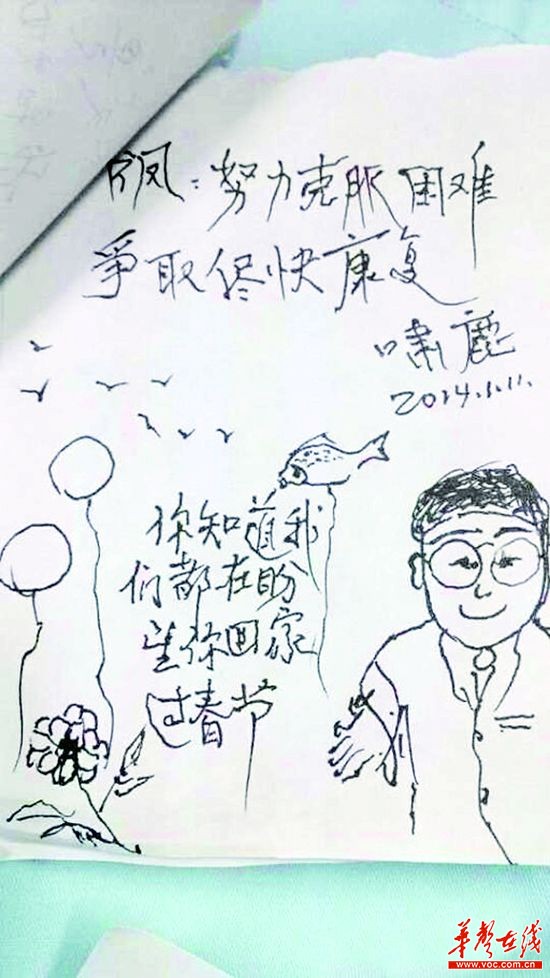 努力克服困难
爭取侭快康复
啸鹿
2014.1.11.
你知道我
们都在盼
望你回家
过春节
華聲在线
www.voc.com.cn